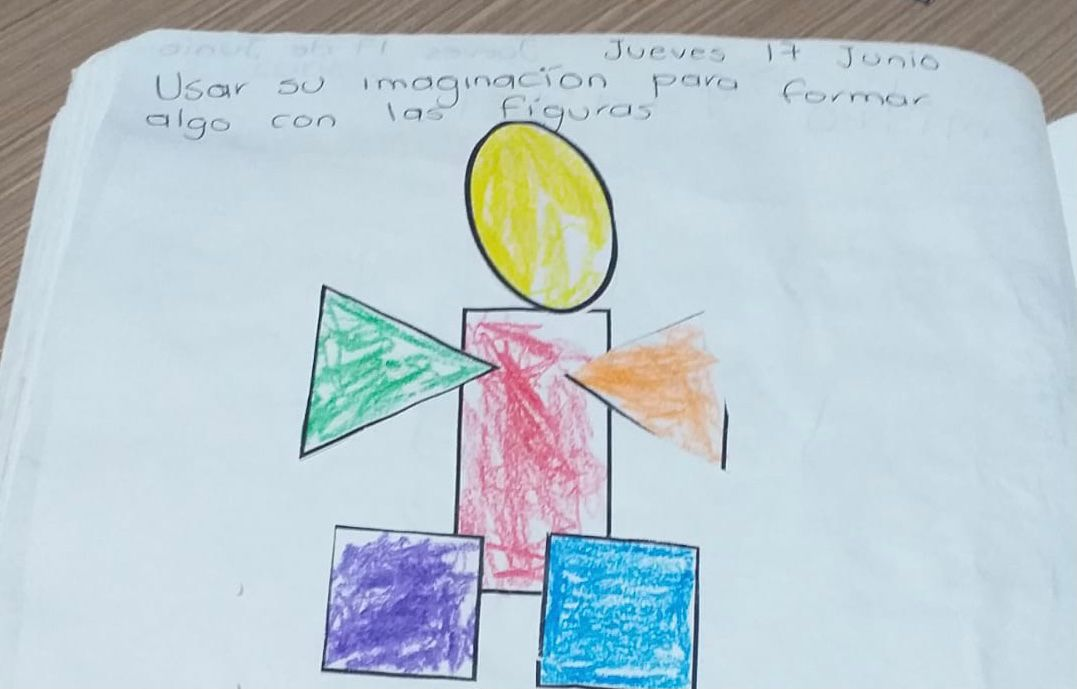 Jueves 17 Junio
Usar su imaginación para formar
algo con las figuras